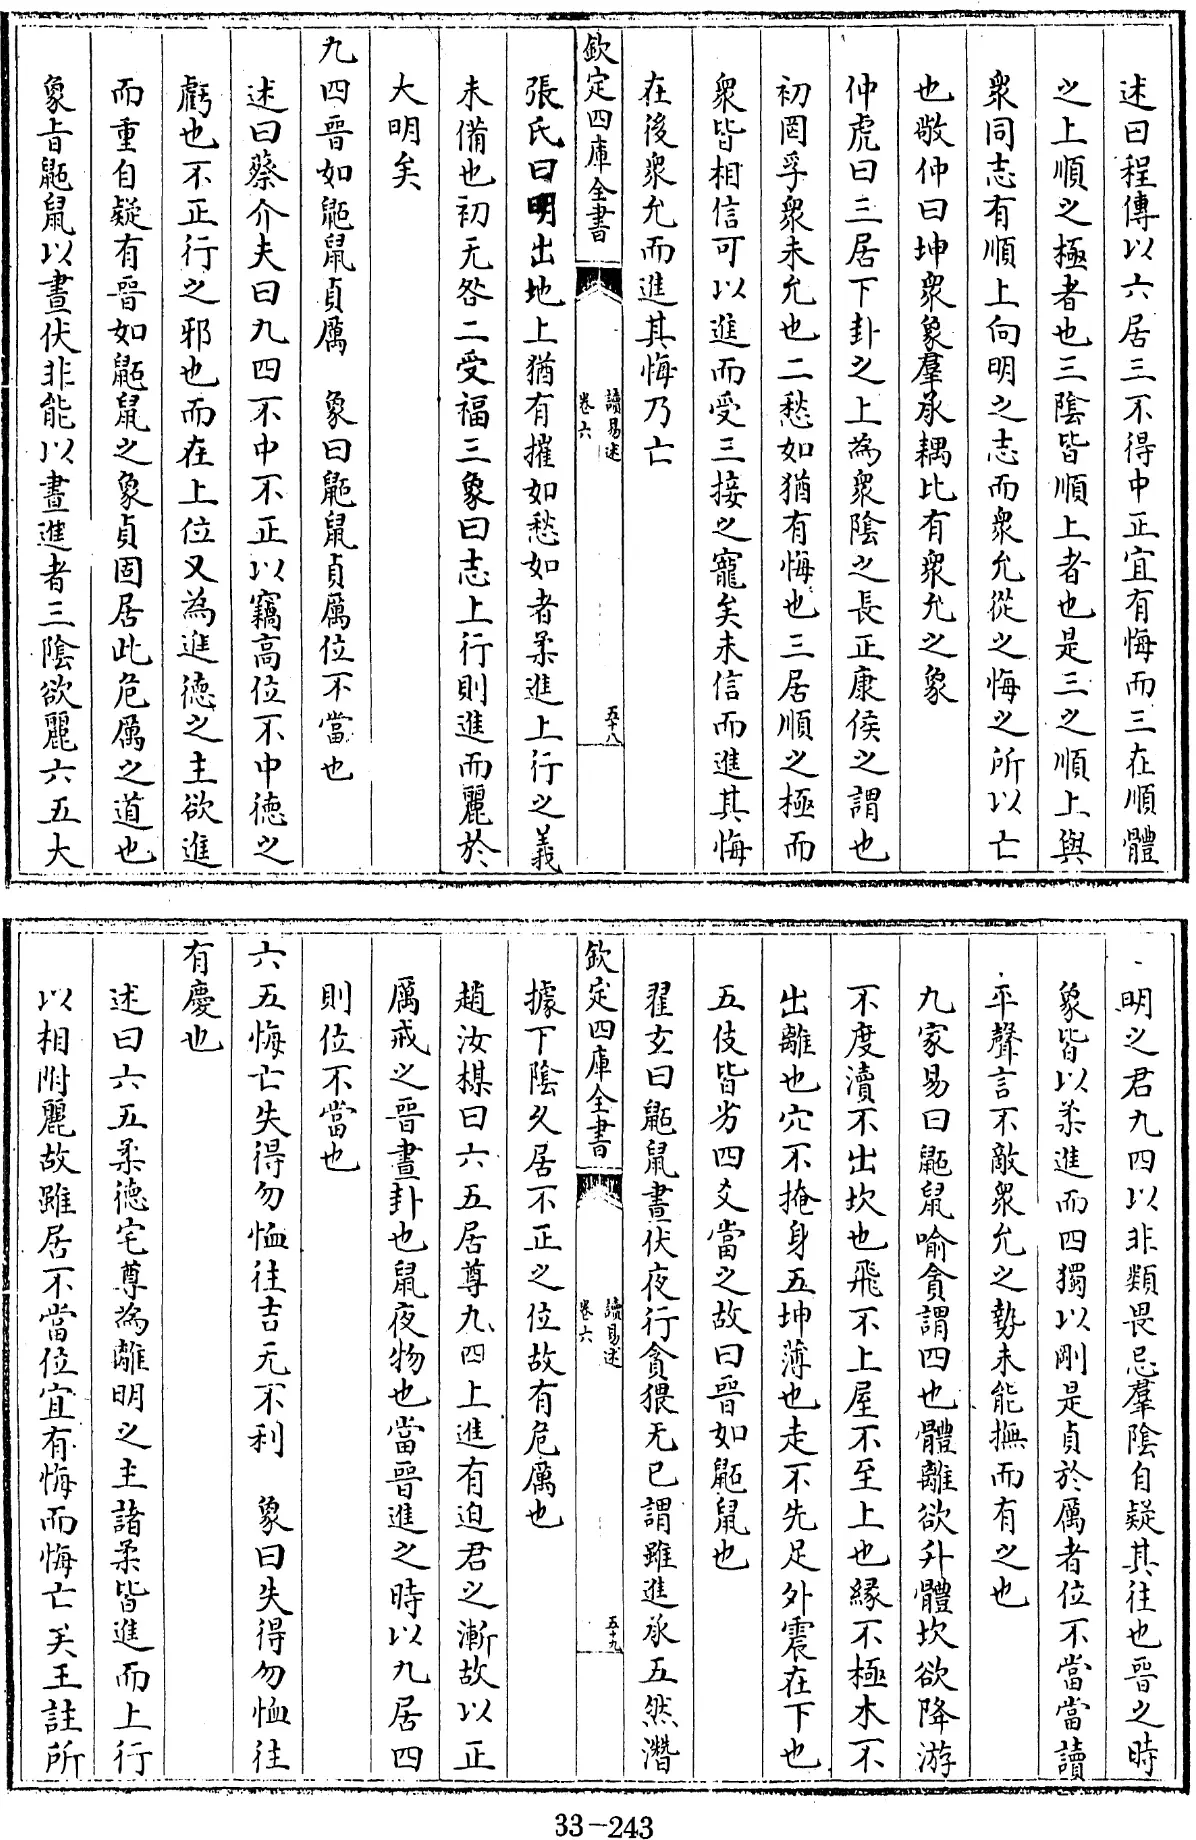 述曰程傳以六居三不得中正宜有悔而三在順體
之上順之極者也三陰皆順上者也是三之順上與
衆同志有順上向明之志而衆允從之悔之所以亡
也敬仲曰坤衆象羣承耦比有衆允之象
仲虎曰三居下卦之上為衆陰之長正康侯之謂也
初罔孚衆未允也二愁如猶有悔也三居順之極而
衆皆相信可以進而受三接之寵矣未信而進其悔
在後衆允而進其悔乃亡
欽定四庫全書
讀易述
卷六
五十八
張氏曰明出地上猶有摧如愁如者柔進上行之義
未備也初无咎二受福三象曰志上行則進而麗於
大明矣
九四晋如鼫鼠貞厲　象曰鼫鼠貞厲位不當也
述曰蔡介夫曰九四不中不正以竊高位不中德之
虧也不正行之邪也而在上位又為進德之主欲進
而重自疑有晋如鼫鼠之象貞固居此危厲之道也
象旨鼫鼠以晝伏非能以晝進者三陰欲麗六五大
明之君九四以非類畏忌羣陰自疑其往也晋之時
象皆以柔進而四獨以剛是貞於厲者位不當當讀
平聲言不敵衆允之勢未能撫而有之也
九家易曰鼫鼠喻貪謂四也體離欲升體坎欲降游
不度瀆不出坎也飛不上屋不至上也緣不極木不
出離也穴不掩身五坤薄也走不先足外震在下也
五伎皆劣四爻當之故曰晋如鼫鼠也
翟玄曰鼫鼠晝伏夜行貪猥无已謂雖進承五然潛
欽定四庫全書
讀易述
卷六
五十九
據下陰久居不正之位故有危厲也
趙汝楳曰六五居尊九四上進有迫君之漸故以正
厲戒之晋晝卦也鼠夜物也當晋進之時以九居四
則位不當也
六五悔亡失得勿恤往吉无不利　象曰失得勿恤往
有慶也
述曰六五柔德宅尊為離明之主諸柔皆進而上行
以相附麗故雖居不當位宜有悔而悔亡矣王註所
33-243